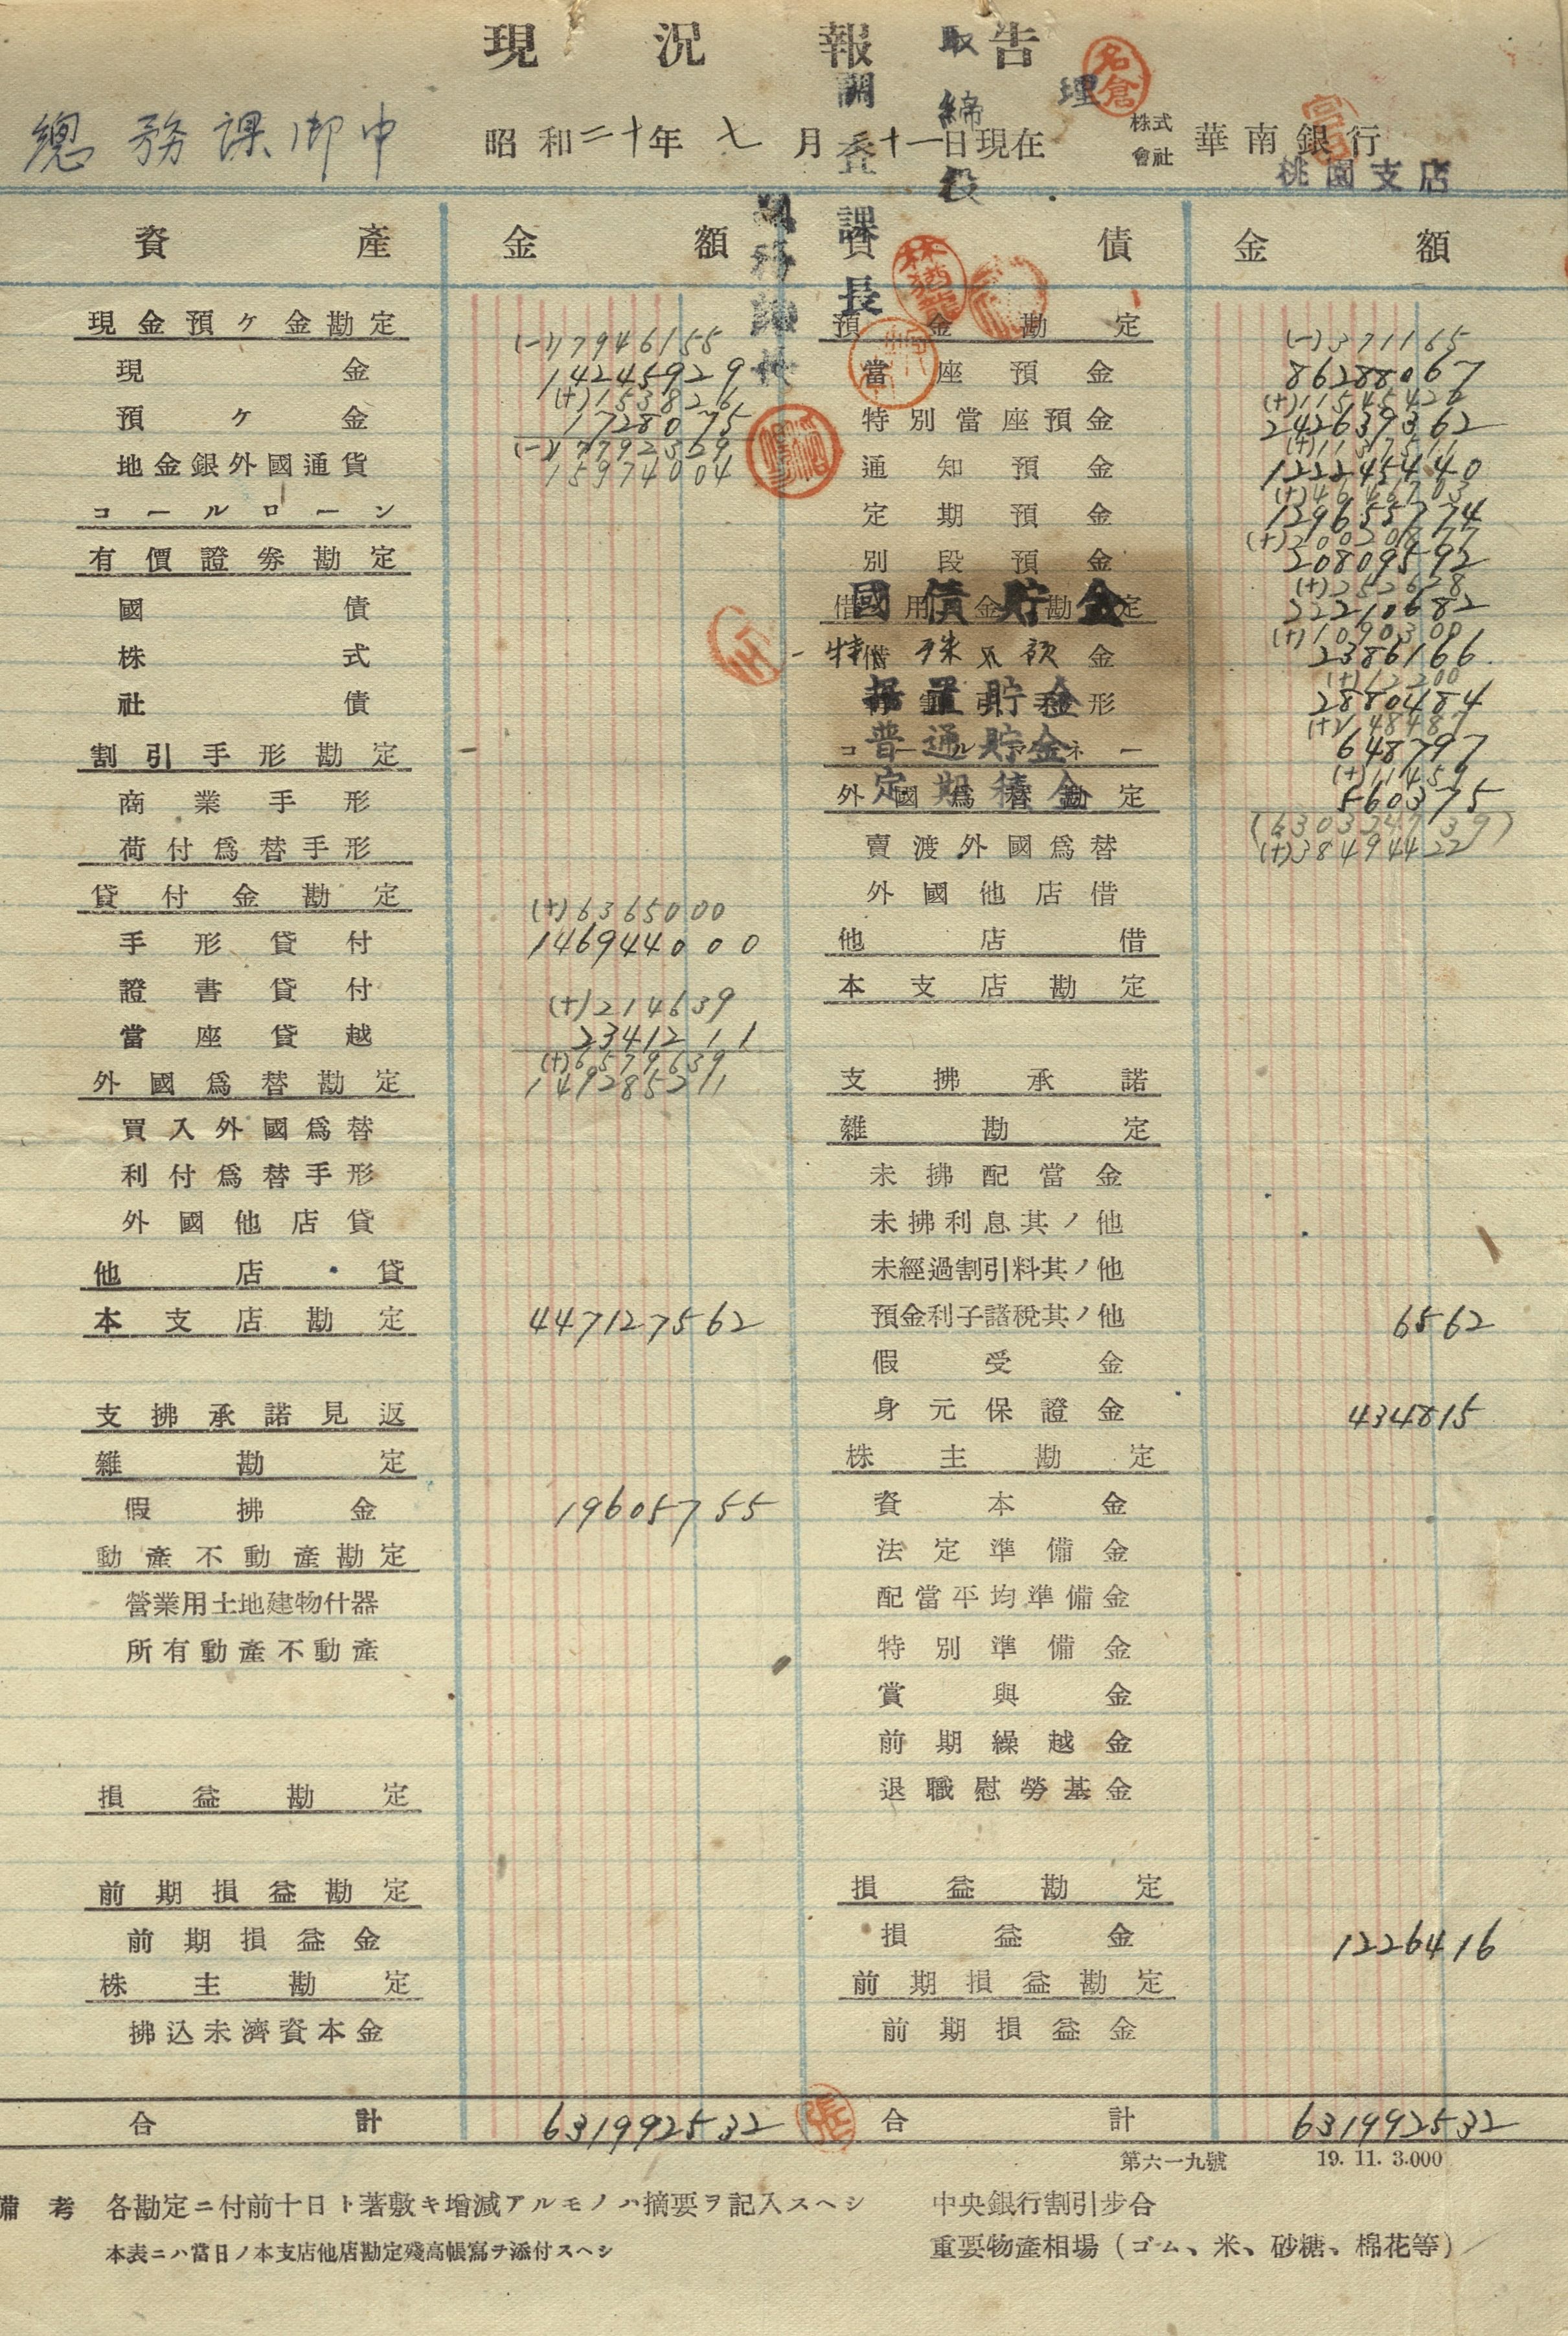 現況報告
取締役
調査課長
理
名倉
總務課御中
昭和二十年七月十一日現在
株式會社 華南銀行
桃園支店
資產 金額 負債 金額
現金預ケ金勘定 (-)17946155
現金 14245929
(+)153826
預ケ金 1728075
(-)17792329
地金銀外國通貨 15974004
コールローン
有價證劵勘定
國債
株式
社債
割引手形勘定
商業手形
荷付爲替手形
貸付金勘定 (+)6365000
手形貸付 146944000
證書貸付 (+)214639
當座貸越 2341211
(+)6579639
外國爲替勘定 149285211
買入外國爲替
利付爲替手形
外國他店貸
他店貸
本支店勘定 447127562
支拂承諾見返
雜勘定
假拂金 19605755
動產不動產勘定
營業用土地建物什器
所有動產不動產
損益勘定
前期損益勘定
前期損益金
株主勘定
拂込未濟資本金
合計 631992532
預金勘定 (-)371165
當座預金 86288067
特別當座預金 242639362
通知預金 122245440
定期預金 129655774
(+)20020877
別段預金 20809592
(+)252628
借用金勘定
國債貯金 22210682
(+)1090300
借入金
特殊預金 2386166
(+)12200
再割引手形
据置貯金 2880484
(+)148487
コールマネー
普通貯金 648797
(+)11459
外國爲替勘定
定期積金 560375
(630324739)
賣渡外國爲替 (+)38494422
外國他店借
他店借
本支店勘定
支拂承諾
雜勘定
未拂配當金
未拂利息其ノ他
未經過割引料其ノ他
預金利子諸稅其ノ他 6562
假受金
身元保證金 434815
株主勘定
資本金
法定準備金
配當平均準備金
特別準備金
賞與金
前期繰越金
退職慰勞基金
損益勘定
損益金 1226416
前期損益勘定
前期損益金
張
合計 631992532
第六一九號 19. 11. 3.000
備考 各勘定ニ付前十日ト著敷キ增減アルモノハ摘要ヲ記入スヘシ
本表ニハ當日ノ本支店他店勘定殘高帳寫ヲ添付スヘシ
中央銀行割引步合
重要物產相場(ゴム、米、砂糖、棉花等)